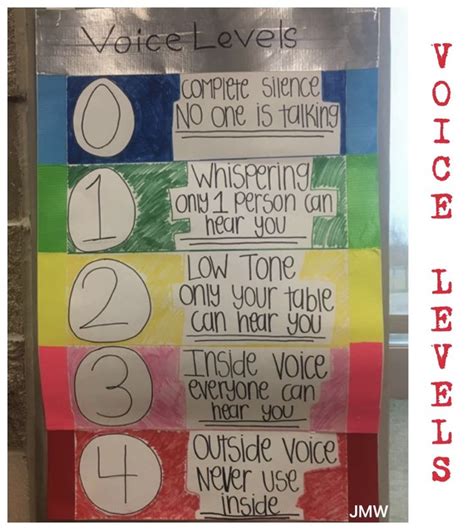 Voice Levels
0
Complete Silence
No one is talking
1
Whispering
only 1 person can
hear you
2
Low Tone
only your table
can hear you
3
Inside Voice
everyone can
hear you
4
Outside Voice
Never use
inside
JMW
VOICE LEVELS